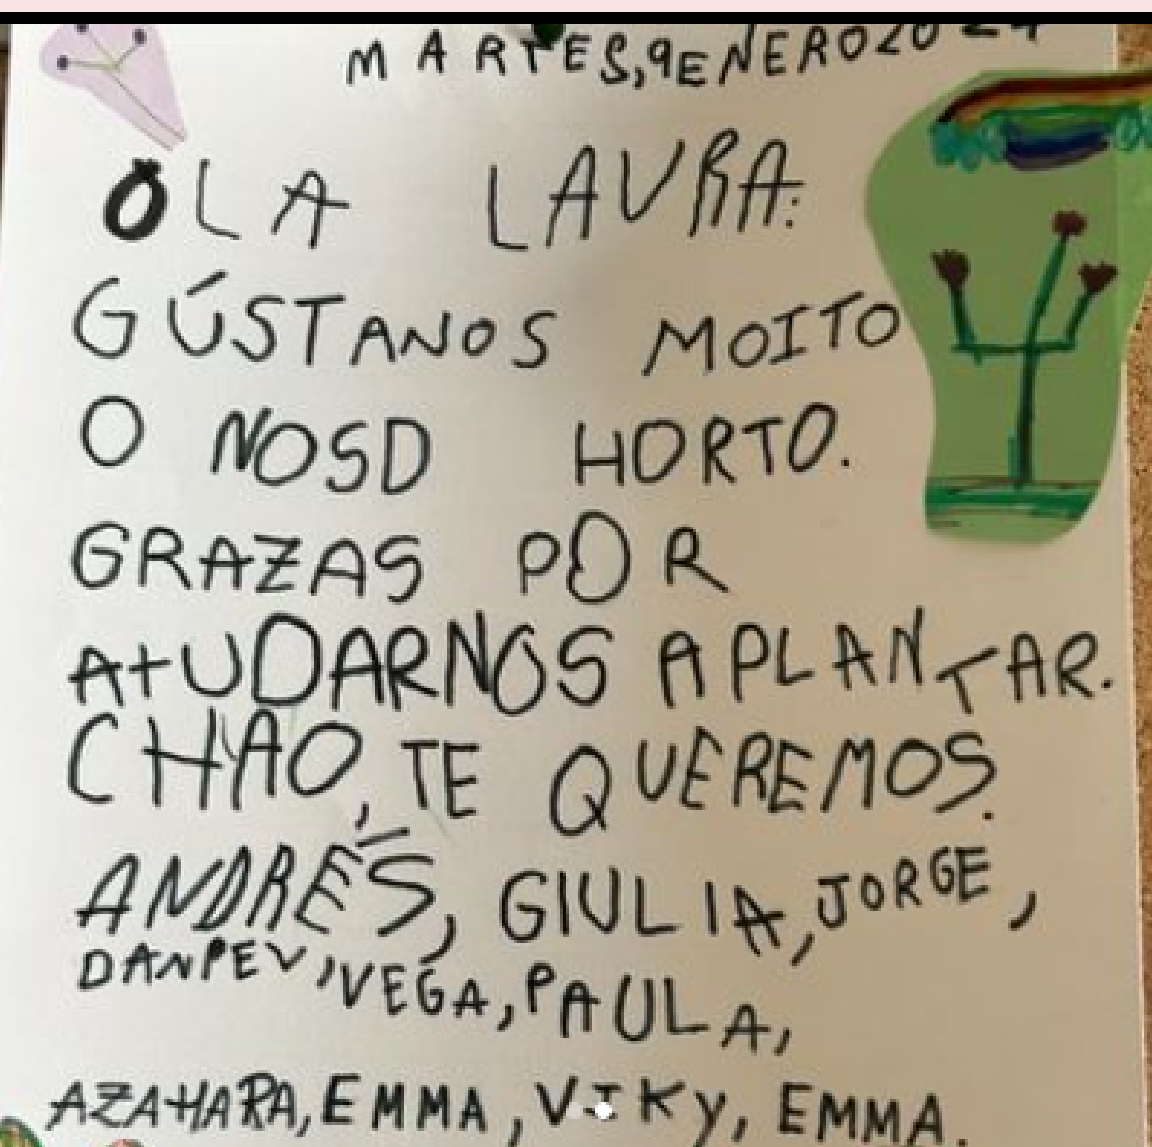 MARTES,9ENERO2024
OLA LAURA:
GÚSTANOS MOITO
O NOSO HORTO.
GRAZAS POR
AXUDARNOS A PLANTAR.
CHAO, TE QUEREMOS.
ANDRÉS, GIULIA, JORGE,
VEGA, PAULA,
AZAHARA, EMMA, VIKY, EMMA.